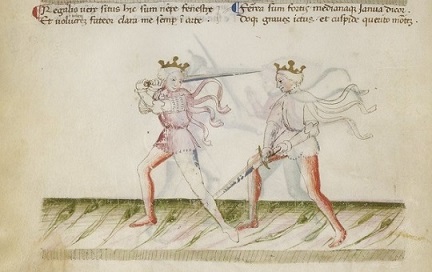 Regalis uerus situs hic sum nẽpe fenestre
Et uolucrẽ fateor clara me semꝑ ĩ arte.
Ferrea sum fortis medianaq; Ianua dicor.
Doq; graues ictus. et cuspide querito mortẽ